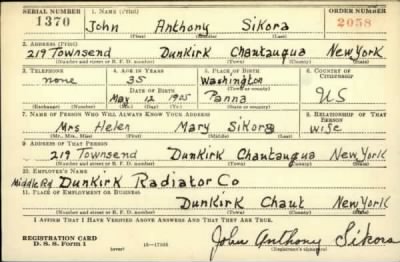 SERIAL NUMBER 1. NAME (Print) ORDER NUMBER
1370 John Anthony Sikora 2058
(First) (Middle) (Last)
2. ADDRESS (Print)
219 Townsend Dunkirk Chautauqua New York
(Number and street or R. F. D. number) (Town) (County) (State)
3. TELEPHONE 4. AGE IN YEARS 5. PLACE OF BIRTH 6. COUNTRY OF CITIZENSHIP
none 35 Washington
DATE OF BIRTH (Town or county)
May 12 1905 Panna US
(Exchange) (Number) (Mo.) (Day) (Yr.) (State or country)
7. NAME OF PERSON WHO WILL ALWAYS KNOW YOUR ADDRESS 8. RELATIONSHIP OF THAT PERSON
Mrs Helen Mary Sikora wife
(Mr., Mrs., Miss) (First) (Middle) (Last)
9. ADDRESS OF THAT PERSON
219 Townsend Dunkirk Chautauqua New York
(Number and street or R. F. D. number) (Town) (County) (State)
10. EMPLOYER'S NAME
Middle Rd Dunkirk Radiator Co
11. PLACE OF EMPLOYMENT OR BUSINESS
Dunkirk Chaut New York
(Number and street or R. F. D. number) (Town) (County) (State)
I AFFIRM THAT I HAVE VERIFIED ABOVE ANSWERS AND THAT THEY ARE TRUE.
REGISTRATION CARD
D. S. S. Form 1 (over) 16—17105 John Anthony Sikora
(Registrant's signature)